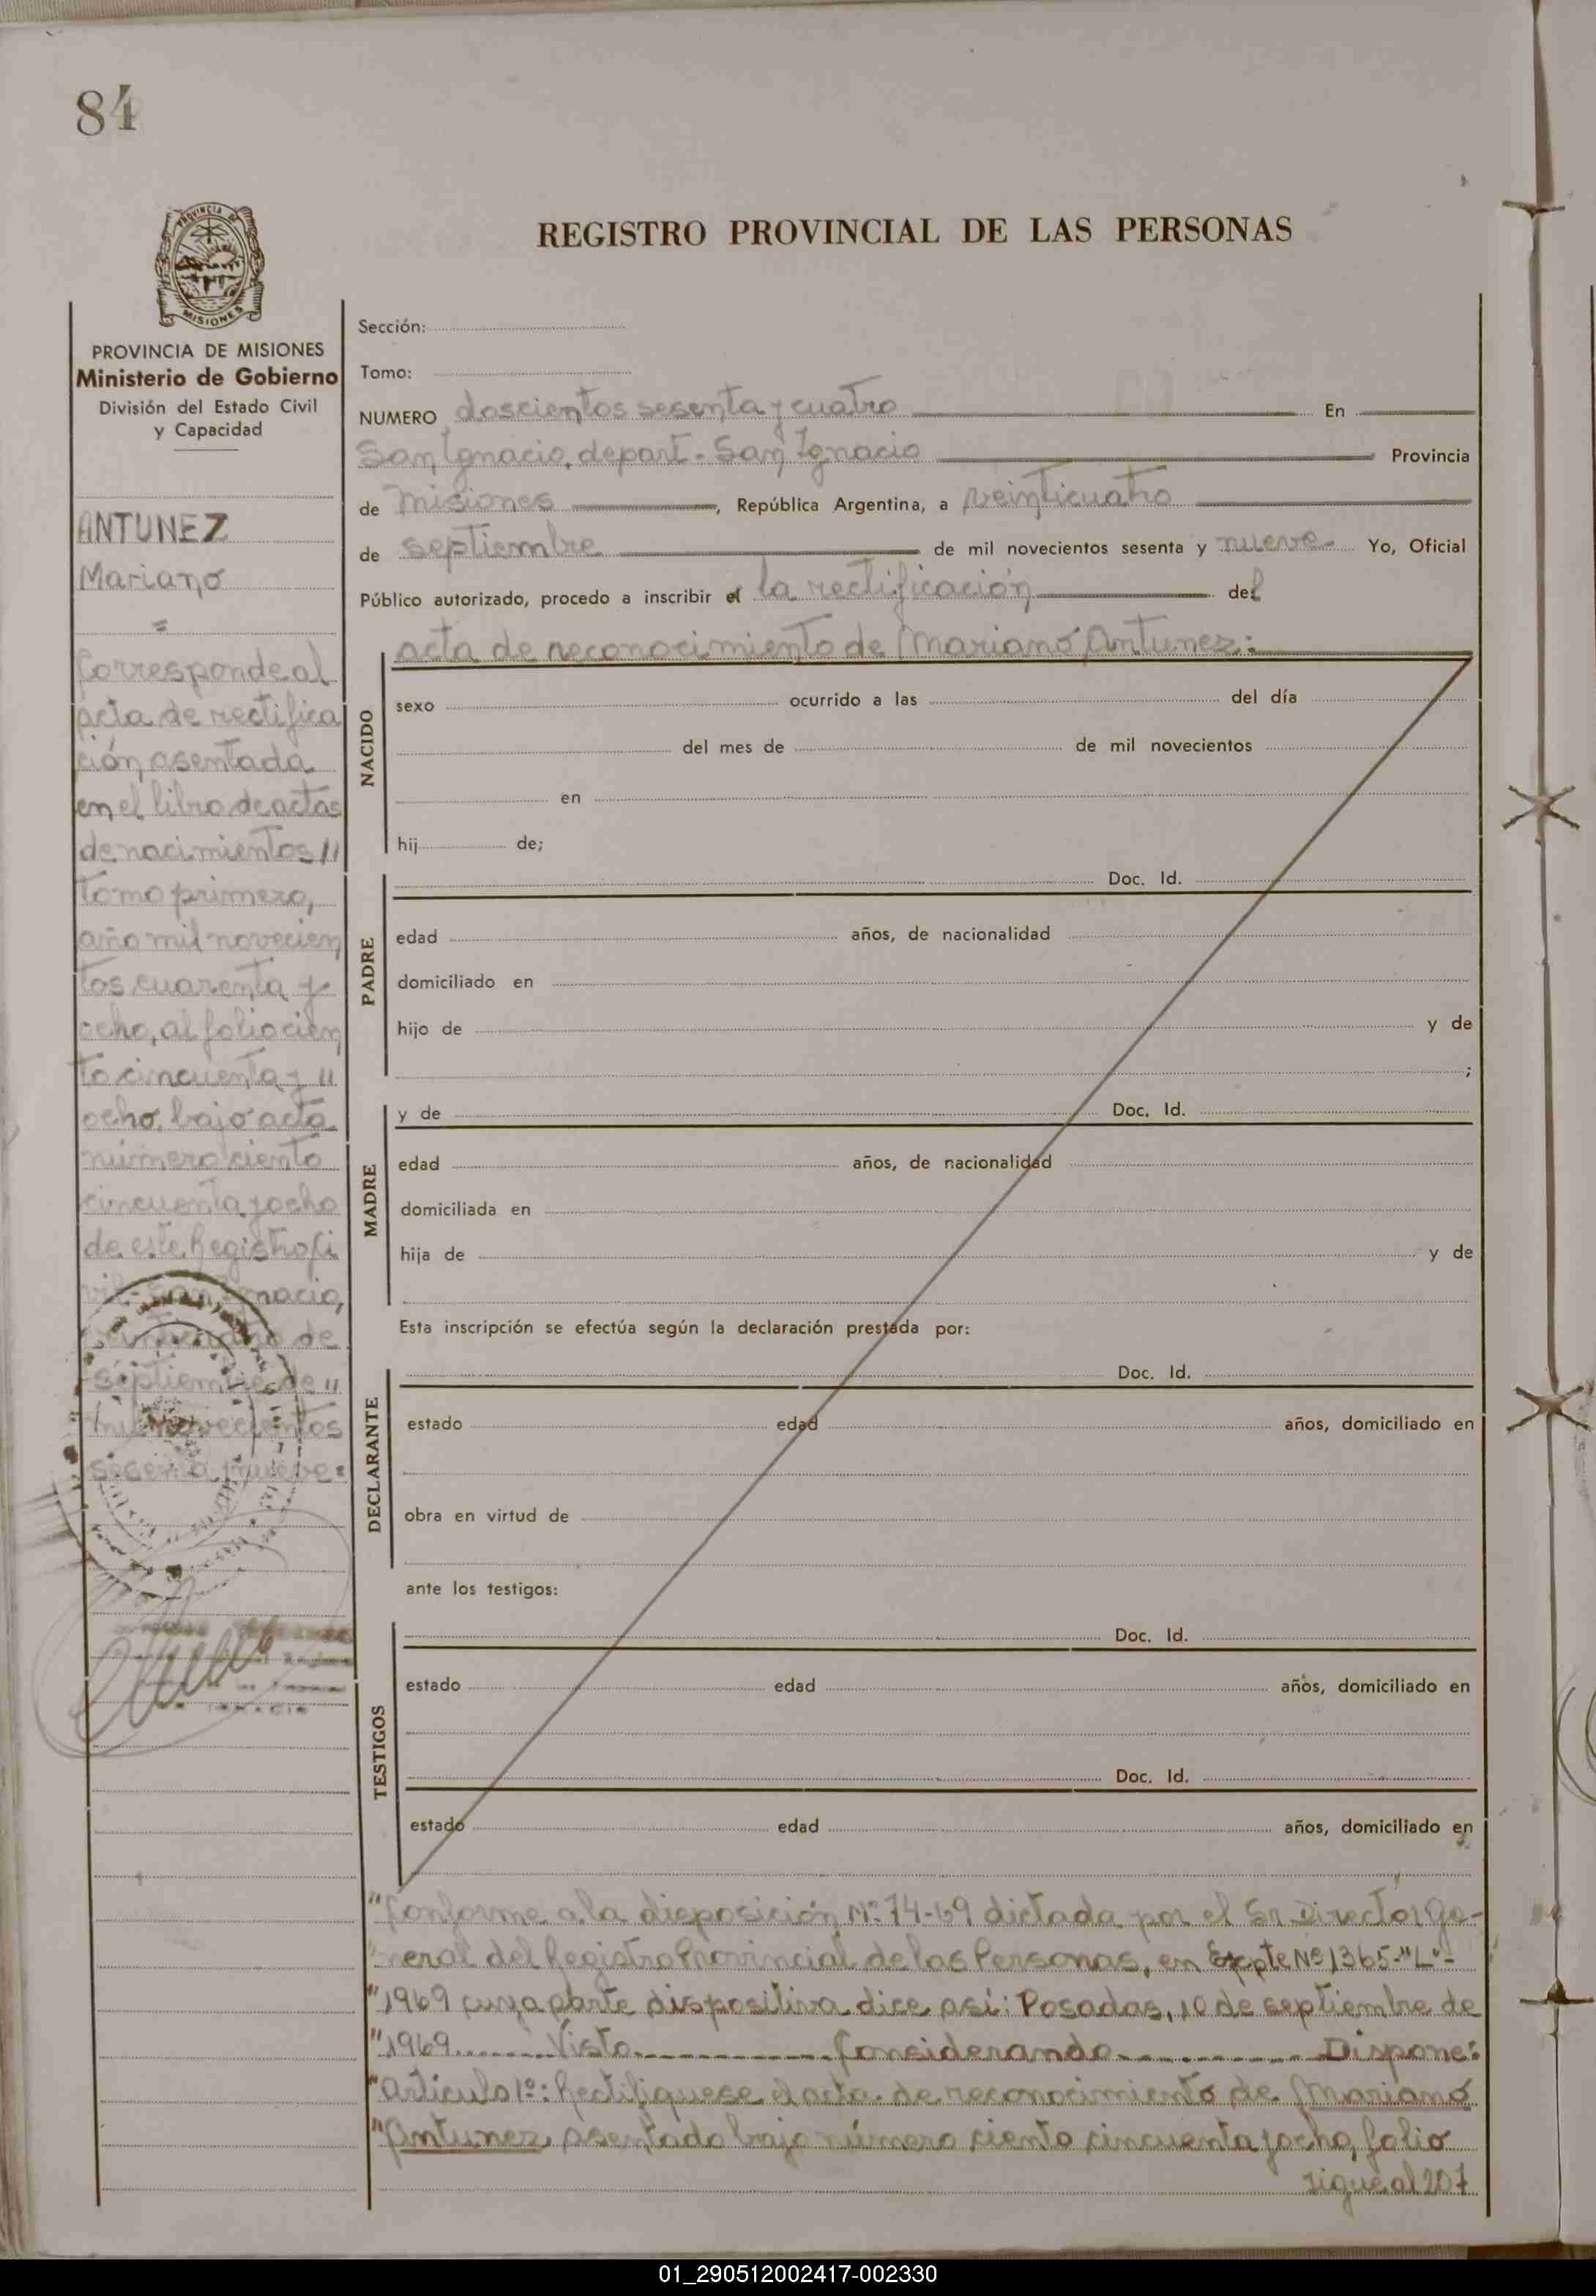 84
PROVINCIA DE
MISIONES
REGISTRO PROVINCIAL DE LAS PERSONAS
PROVINCIA DE MISIONES
Ministerio de Gobierno
División del Estado Civil
y Capacidad
ANTUNEZ
Mariano
=
Corresponde al
acta de rectifica
ción asentada
en el libro de actas
de nacimientos //
tomo primero,
año mil novecien
tos cuarenta y
ocho, al folio cien
to cincuenta y //
ocho, bajo acta
número ciento
cincuenta y ocho
de este Registro Ci
vil - San Ignacio,
de
septiembre de //
mil novecientos
sesenta y nueve=
Sección:
Tomo:
NUMERO doscientos sesenta y cuatro En
San Ignacio, depart. San Ignacio Provincia
de Misiones, República Argentina, a veinticuatro
de septiembre de mil novecientos sesenta y nueve Yo, Oficial
Público autorizado, procedo a inscribir el la rectificación del
acta de reconocimiento de Mariano Antunez:
NACIDO
sexo ocurrido a las del día
del mes de de mil novecientos
en
hij de;
PADRE
Doc. Id.
edad años, de nacionalidad
domiciliado en
hijo de y de
;
MADRE
y de Doc. Id.
edad años, de nacionalidad
domiciliada en
hija de y de
Esta inscripción se efectúa según la declaración prestada por:
DECLARANTE
Doc. Id.
estado edad años, domiciliado en
obra en virtud de
ante los testigos:
TESTIGOS
Doc. Id.
estado edad años, domiciliado en
Doc. Id.
estado edad años, domiciliado en
"Conforme a la disposición Nº 74-69 dictada por el Sr Director Ge-
"neral del Registro Provincial de las Personas, en Expte Nº 1365-"L"-
"1969 cuya parte dispositiva dice así: Posadas, 10 de septiembre de
"1969........Visto............Considerando............Dispone:
"Artículo 1º: Rectifíquese el acta de reconocimiento de Mariano
"Antunez, asentado bajo número ciento cincuenta y ocho, folio
sigue al 207
01_290512002417-002330